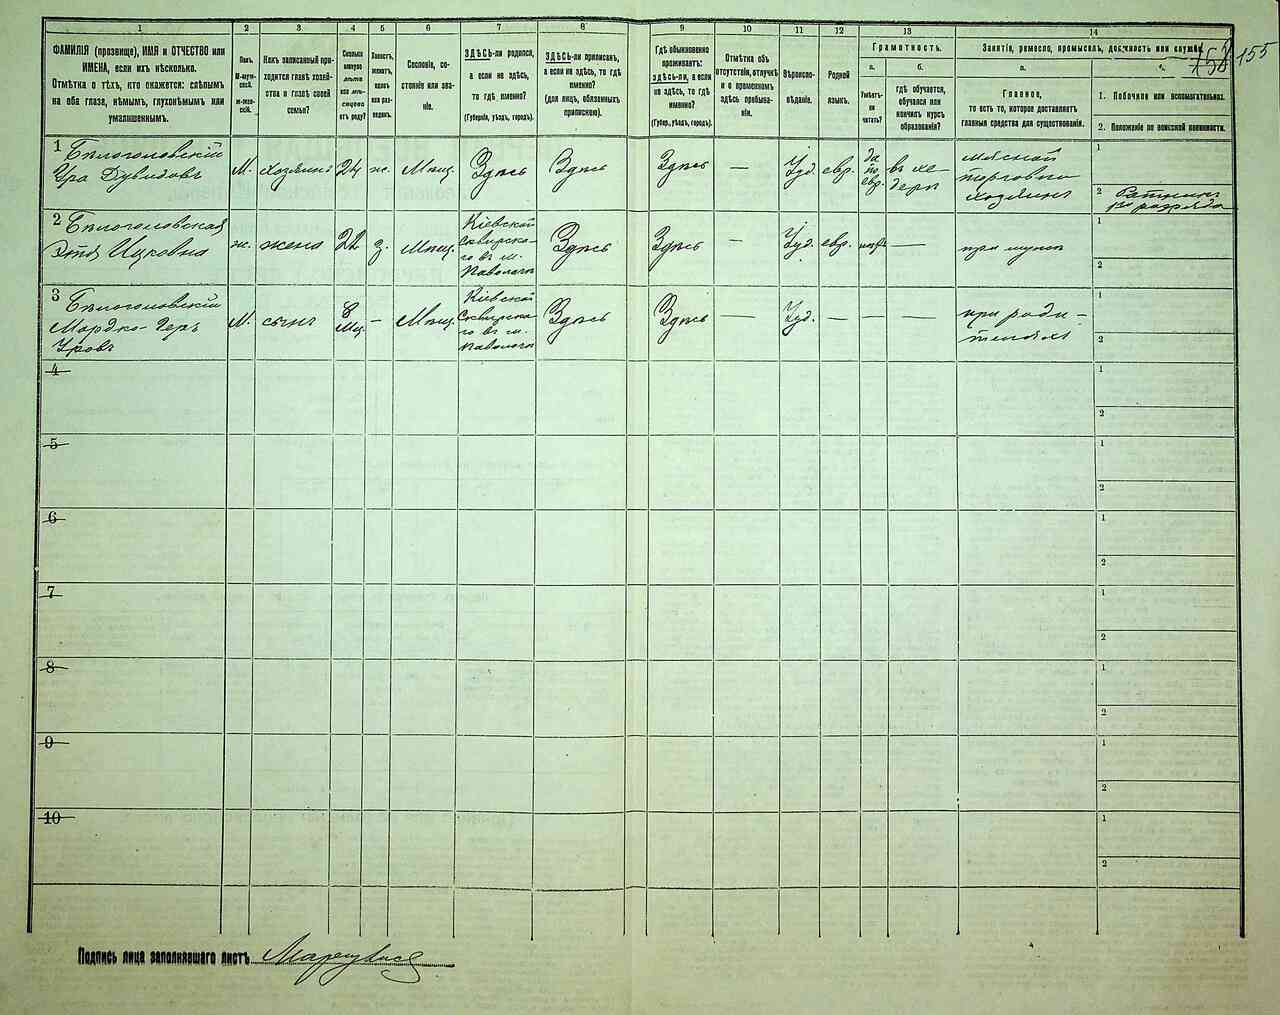 1 2 3 4 5 6 7 8 9 10 11 12 13 14
155
ФАМИЛІЯ (прозвище), ИМЯ и ОТЧЕСТВО или
ИМЕНА, если ихъ нѣсколько.
Отмѣтка о тѣхъ, кто окажется: слѣпымъ
на оба глаза, нѣмымъ, глухонѣмымъ или
умалишеннымъ.
Полъ.
М-мужской.
ж-женскій.
Какъ записанный приходится
главѣ хозяйства
и главѣ своей
семьи?
Сословіе, состояніе
или званіе.
ЗДѢСЬ-ли родился,
а если не здѣсь,
то гдѣ именно?
(Губернія, уѣздъ, городъ).
ЗДѢСЬ-ли приписанъ,
а если не здѣсь, то гдѣ
именно?
(для лицъ, обязанныхъ
припискою).
Гдѣ обыкновенно
проживаетъ:
ЗДѢСЬ-ли, а если
не здѣсь, то гдѣ
именно?
(Губер., уѣздъ, городъ).
Отмѣтка объ
отсутствіи, отлучкѣ
и о временномъ
здѣсь пребываніи.
Вѣроисповѣданіе.
Родной
языкъ.
Грамотность.
а.
Умѣетъ-ли
читать?
б.
гдѣ обучается,
обучался или
кончилъ курсъ
образованія?
Занятіе, ремесло, промыселъ, должность или служба.
а.
Главное,
то есть то, которое доставляетъ
главныя средства для существованія.
1. Побочное или вспомогательное.
2. Положеніе по воинской повинности.
1 Бѣлоголовскій
Ура Дувидовъ
М. хозяинъ 24 ж. Мѣщ. Здѣсь Здѣсь Здѣсь — Іуд. евр. да по евр. въ хедерѣ
мясной
торговли
хозяинъ
1
2 Ратникъ
1го разряда
2 Бѣлоголовская
Этя Ицковна
ж. жена 22 з. Мѣщ.
Кіевской
Сквирскаго
въ м.
Паволочь
Здѣсь Здѣсь — Іуд. евр. нѣтъ —
при мужѣ
1
2
3 Бѣлоголовскій
Мордко-Геръ
Уровъ
М. сынъ 8 Мц. — Мѣщ.
Кіевской
Сквирскаго
въ м.
Паволочь
Здѣсь Здѣсь — Іуд. — — —
при роди-
теляхъ
1
2
4
1
2
5
1
2
6
1
2
7
1
2
8
1
2
9
1
2
10
1
2
Подпись лица заполнявшаго листъ